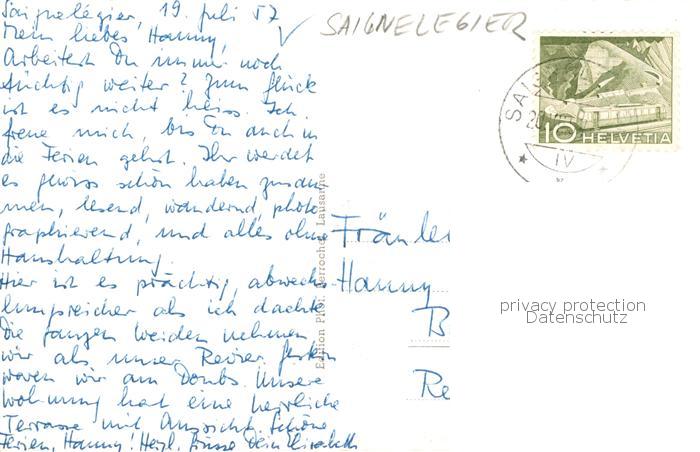 Saignelégier, 19. Juli 57
Mein liebes Hanny,
Arbeitest Du immer noch
tüchtig weiter? Zum Glück
ist es nicht heiss. Ich
freue mich, bis Du auch in
die Ferien gehst. Ihr werdet
es gewiss schön haben zusam-
men, lesend, wandernd, photo-
graphierend, und alles ohne
Haushaltung.
Hier ist es prächtig, abwechs-
lungsreicher als ich dachte.
Die ganzen Weiden nehmen
wir als unser Revier. Gestern
waren wir am Doubs. Unsere
Wohnung hat eine herrliche
Terrasse mit Aussicht. Schöne
Ferien, Hanny! Herzl. Grüsse Dein Elisabeth
SAIGNELEGIER
10 HELVETIA
SAIG
IV
Edition Phot. Perrochet Lausanne
Fräulei
Hanny
B
Re
privacy protection
Datenschutz